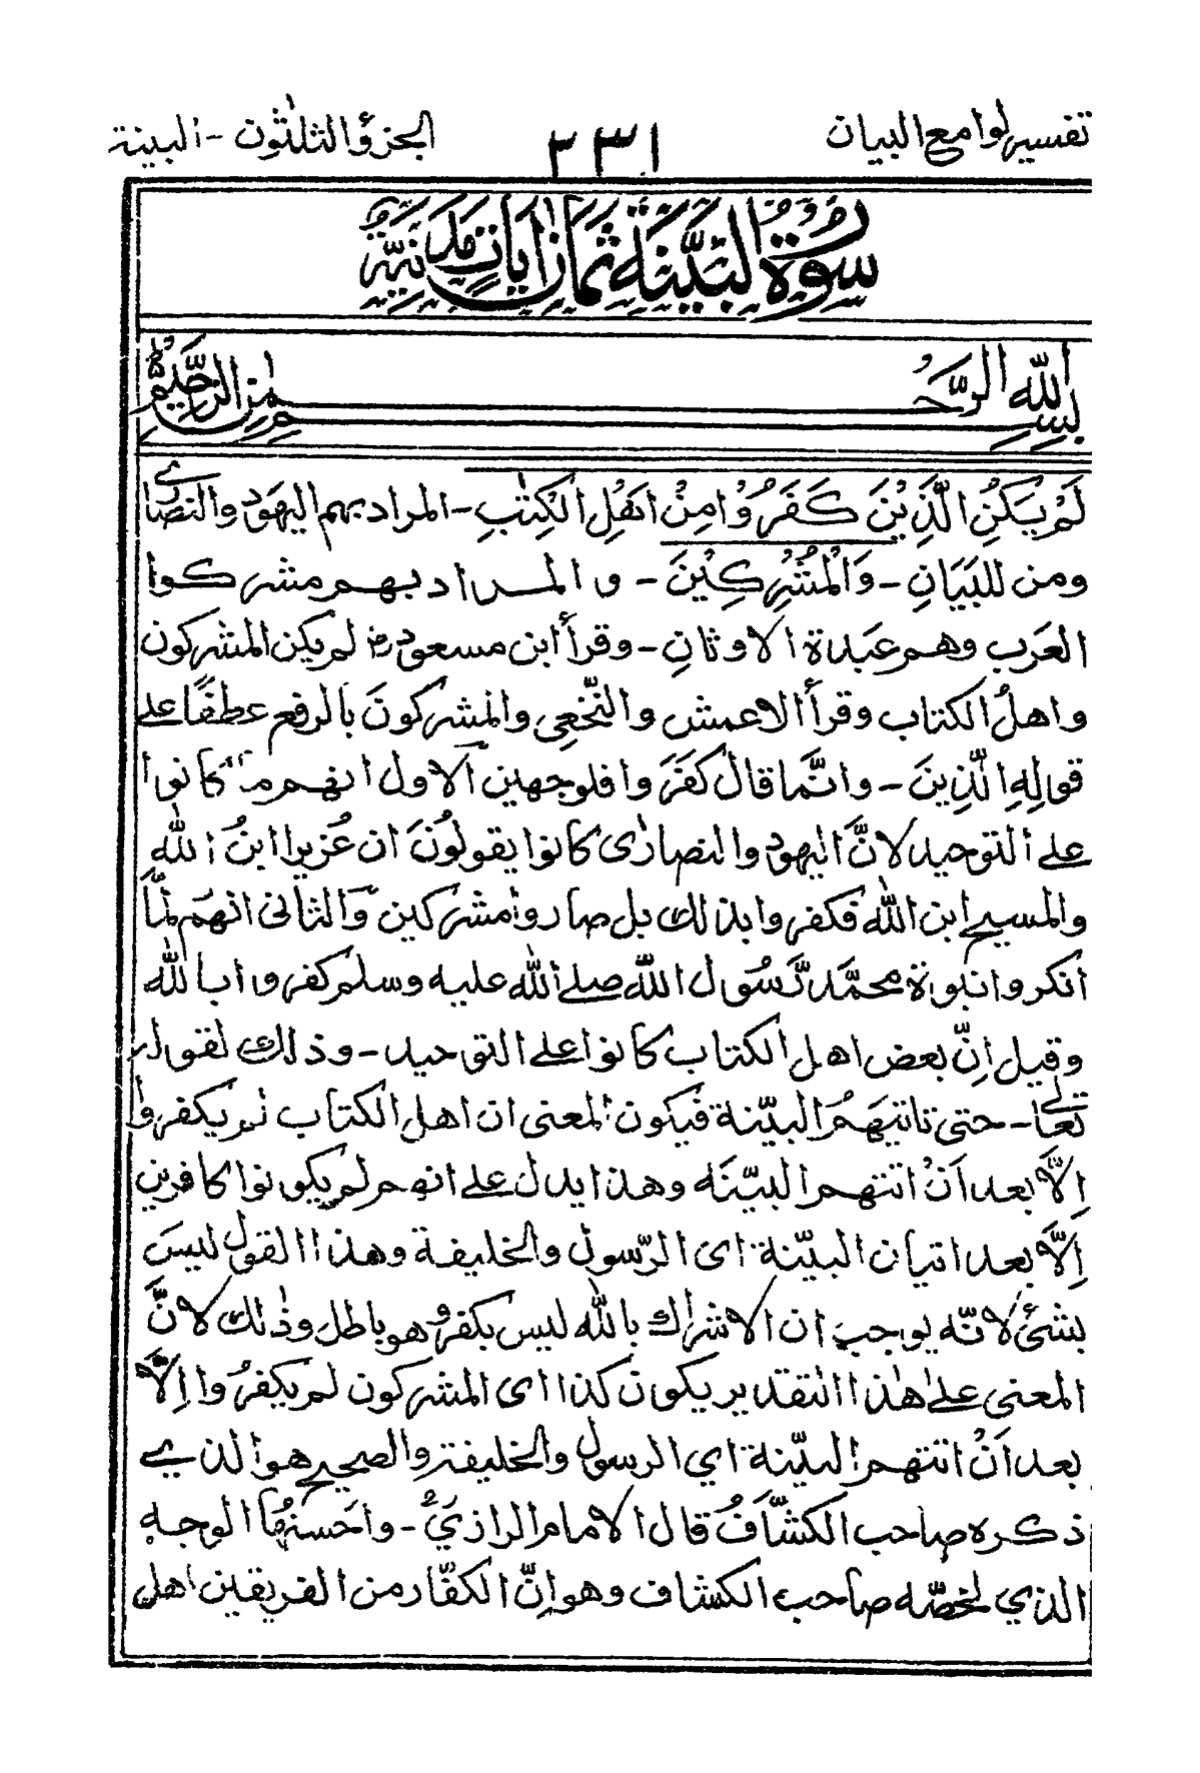 تفسير لوامع البيان ٣٣١ الجزؤ الثلثون - البينة
سورة البينة ثمان ايات مدنية
بسم الله الرحمن الرحيم
لَمْ يَكُنِ الَّذِيْنَ كَفَرُوْا مِنْ اَهْلِ الْكِتٰبِ - المراد بهم اليهود والنصارٰى
ومن للبَيَانِ - وَالْمُشْرِكِيْنَ - والمراد بهم مشركوا
العَرب وهم عَبدة الاوثانِ - وقرأ ابن مسعود رض لم يكن المشركون
واهلُ الكتاب وقرأ الاعمش والنّخعِي والمشركونَ بالرفع عطفًا على
قولِهِ الّذِينَ - وانّما قال كفَرَوا فلوجهين الاول انهم ما كانوا
على التوحيد لانَّ اليهود والنصارٰى كانوا يقولُوْنَ ان عُزيرا ابنُ الله
والمسيح ابن الله فكفروا بذلك بل صاروا مشركين والثانى انهم لمّا
انكروا نبوة محمَّد رَّسُول الله صلے الله عليه وسلم كفروا بالله
وقيل اِنّ بعض اهل الكتاب كانوا على التوحيد - وذلك لقوله
تعالٰى - حتى تاتيَهمُ البيّنة فيكون المعنى ان اهل الكتاب لم يكفروا
اِلَّا بعد اَنْ اتتهم البيّنَه وهذا يدل على انهم لم يكونوا كافرين
اِلَّا بعد اتيان البيّنة اى الرّسول والخليفة وهذا القول ليسَ
بشئ لانّه يوجب ان الاشراك بالله ليس بكفر وهو باطل وذٰلك لانَّ
المعنى على هٰذا التقدير يكون كذا اى المشركون لم يكفرُوا اِلَّا
بعد اَنْ اتتهم البيّنة اي الرسول والخليفة والصحيح هو الذي
ذكره صاحب الكشّاف قال الامام الرازيُّ - واحَسنها الوجه
الذي لخصّه صاحب الكشاف وهو اِنّ الكفّار من الفريقين اهل